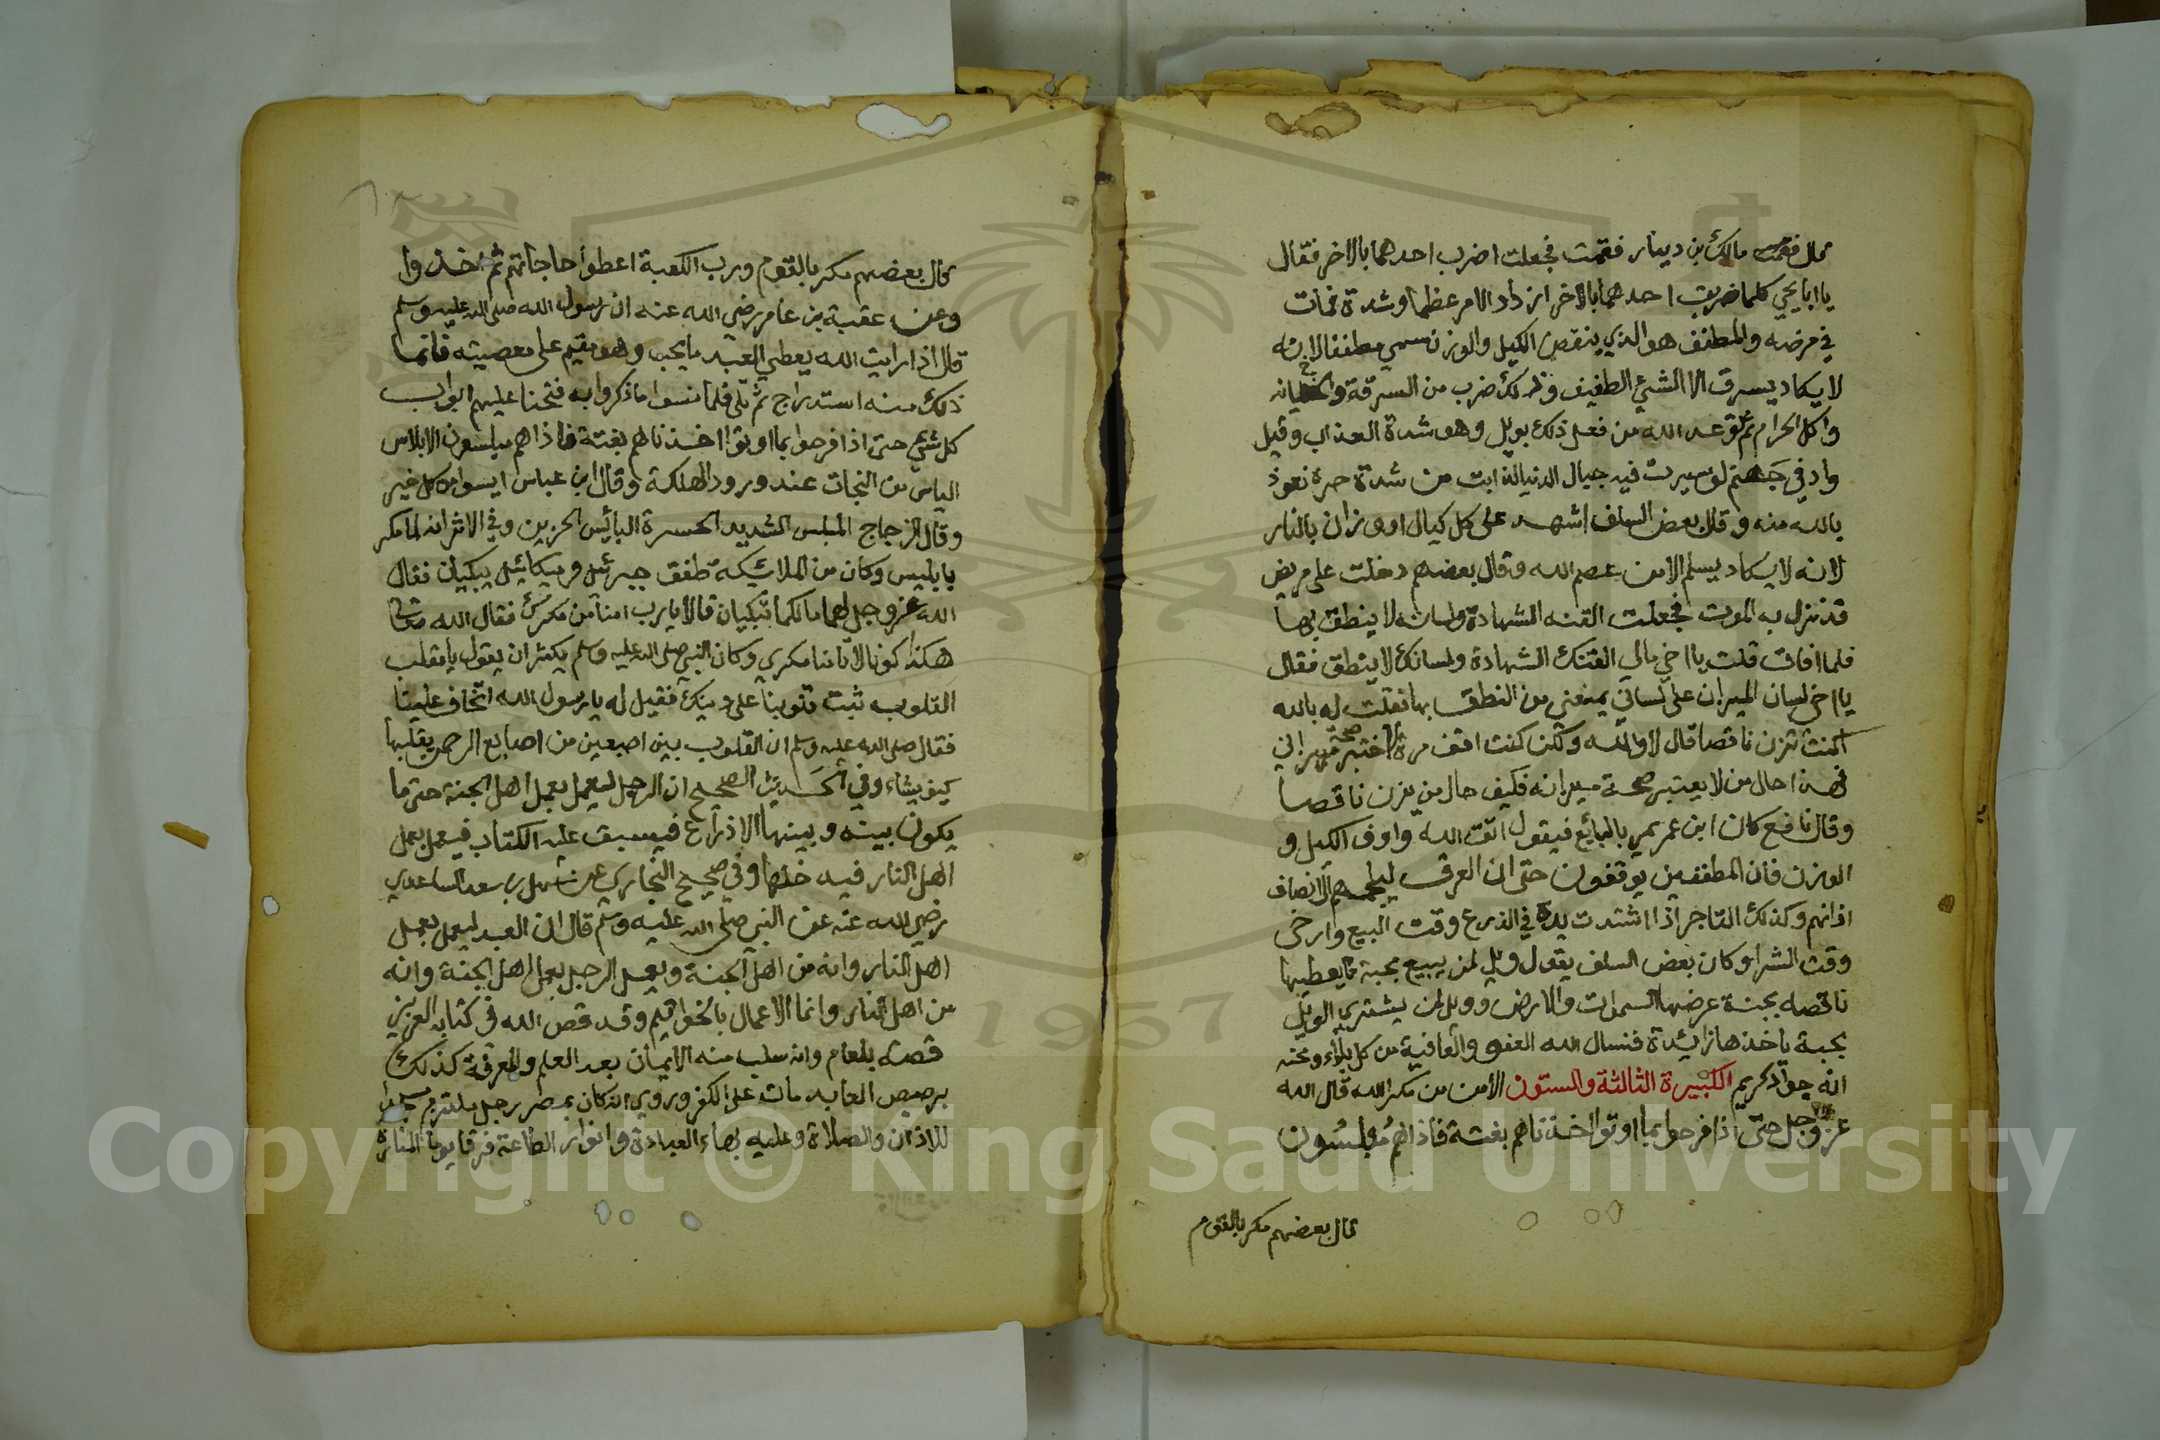 قال فقمت مالك بن دينار فقمت فجعلت اضرب احدهما بالاخر فقال
يا ابا يحي كلما ضربت احدهما بالاخر ازداد الامر عظما وشدة فمات
في مرضه والمطفف هو الذي ينقص الكيل والوزن سمي مطففا لانه
لا يكاد يسرق الا الشئ الطفيف وذلك ضرب من السرقة والخيانه
واكل الحرام ثم توعد الله من فعل ذلك بويل وهو شدة العذاب وقيل
واد في جهنم لو سيرت فيه جبال الدنيا لذابت من شدة حره نعوذ
بالله منه وقال بعض السلف اشهد على كل كيال او وزان بالنار
لانه لا يكاد يسلم الا من عصم الله وقال بعضهم دخلت على مريض
قد نزل به الموت فجعلت القنه الشهادة ولسانه لا ينطق بها
فلما افاق قلت يا اخي مالي القنك الشهادة ولسانك لا ينطق فقال
يا اخي لسان الميزان على لساني يمنعني من النطق بها فقلت له بالله
اكنت تزن ناقصا قال لا والله ولكن كنت اقف مرة لا اختبر صحة ميزاني
فهذا حال من لا يعتبر صحة ميزانه فكيف حال من يزن ناقصا
وقال نافع كان ابن عمر يمر بالبائع فيقول اتق الله واوف الكيل و
الوزن فان المطففين يوقفون حتى ان العرق ليلجمهم الى انصاف
اذانهم وكذلك التاجر اذا اشتدت يده في الذرع وقت البيع وارخى
وقت الشرا وكان بعض السلف يقول ويل لمن يبيع بحبة يعطيها
ناقصه بجنة عرضها السموات والارض وويل لمن يشتري الويل
بحبة ياخذها زائدة فنسال الله العفو والعافية من كل بلاء ومحنه
انه جواد كريم الكبيرة الثالثة والستون الامن من مكر الله قال الله
عز وجل حتى اذا فرحوا بما اوتوا اخذناهم بغتة فاذاهم مبلسون
قال بعضهم مكر بالقوم
قال بعضهم مكر بالقوم ورب الكعبة اعطوا حاجاتهم ثم اخذوا
وعن عقبة بن عامر رضي الله عنه ان رسول الله صلى الله عليه وسلم
قال اذا رايت الله يعطي العبد ما يحب وهو مقيم على معصيته فانما
ذلك منه استدراج ثم تلى فلما نسوا ما ذكروا به فتحنا عليهم ابواب
كل شئ حتى اذا فرحوا بما اوتوا اخذناهم بغتة فاذاهم مبلسون الابلاس
الياس من النجات عند ورود الهلكة وقال ابن عباس ايسوا من كل خير
وقال الزجاج المبلس الشديد الحسرة البائس الحزين وفي الاثر انه لما مكر
بابليس وكان من الملائكة طفق جبرئيل وميكائيل يبكيان فقال
الله عز وجل لهما مالكما تبكيان قالا يا رب امنا من مكرك فقال الله تعالى
هكذا كونا لا تامنا مكري وكان النبي صلى الله عليه وسلم يكثر ان يقول يا مقلب
القلوب ثبت قلوبنا على دينك فقيل له يا رسول الله اتخاف علينا
فقال صلى الله عليه وسلم ان القلوب بين اصبعين من اصابع الرحمن يقلبها
كيف يشاء وفي الحديث الصحيح ان الرجل ليعمل بعمل اهل الجنة حتى ما
يكون بينه وبينها الا ذراع فيسبق عليه الكتاب فيعمل بعمل
اهل النار فيدخلها وفي صحيح البخاري عن سهل بن سعد الساعدي
رضي الله عنه عن النبي صلى الله عليه وسلم قال ان العبد ليعمل بعمل
اهل النار وانه من اهل الجنة ويعمل الرجل بعمل اهل الجنة وانه
من اهل النار وانما الاعمال بالخواتيم وقد قص الله في كتابه العزيز
قصة بلعام وانه سلب منه الايمان بعد العلم والمعرفة كذلك
برصيص العابد مات على الكفر وروي انه كان بمصر رجل يلتزم
للاذان والصلاة وعليه بهاء العبادة وانوار الطاعة فرقا يوما المنارة
1957
Copyright © King Saud University